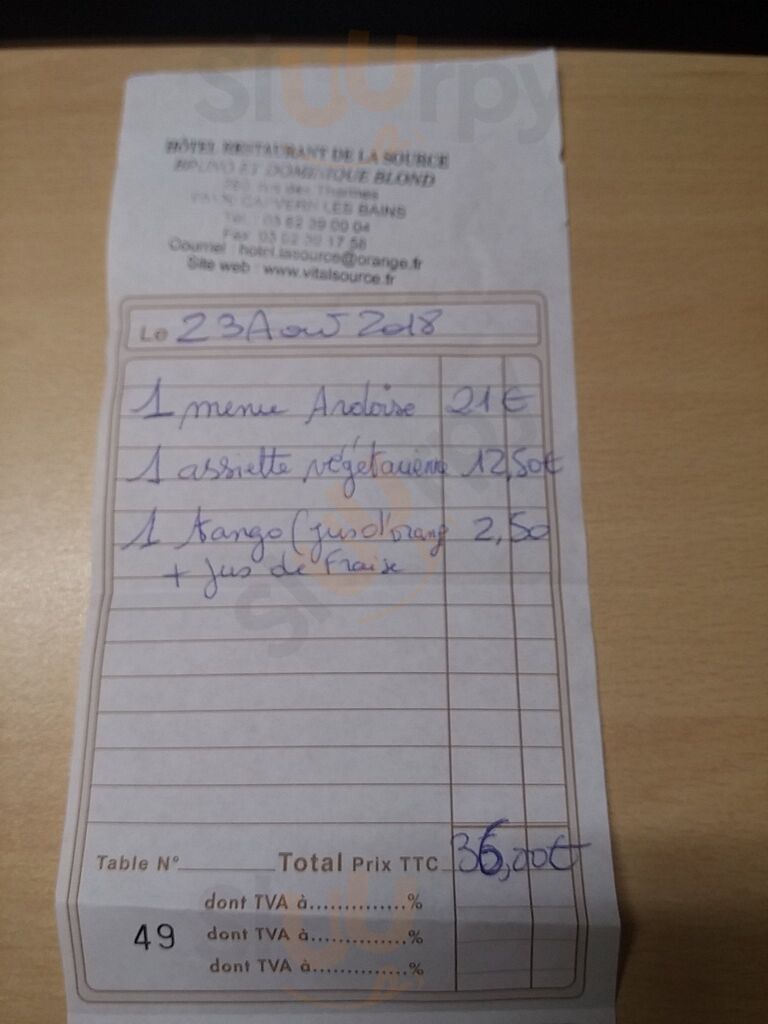 HÔTEL RESTAURANT DE LA SOURCE
BRUNO ET DOMINIQUE BLOND
rue des Thermes
CAPVERN LES BAINS
Tél : 05 62 39 00 04
Fax 05 62 39 17 58
Courriel : hotel.lasource@orange.fr
Site web : www.vitalsource.fr
Le 23 Aout 2018
1 menu Ardoise 21 €
1 assiette végétarienne 12,50€
1 tango (jus d'orang 2,50
+ jus de fraise
Table N° Total Prix TTC 36,00€
dont TVA à..............%
49 dont TVA à..............%
dont TVA à..............%
slurpy
slurpy
slurpy